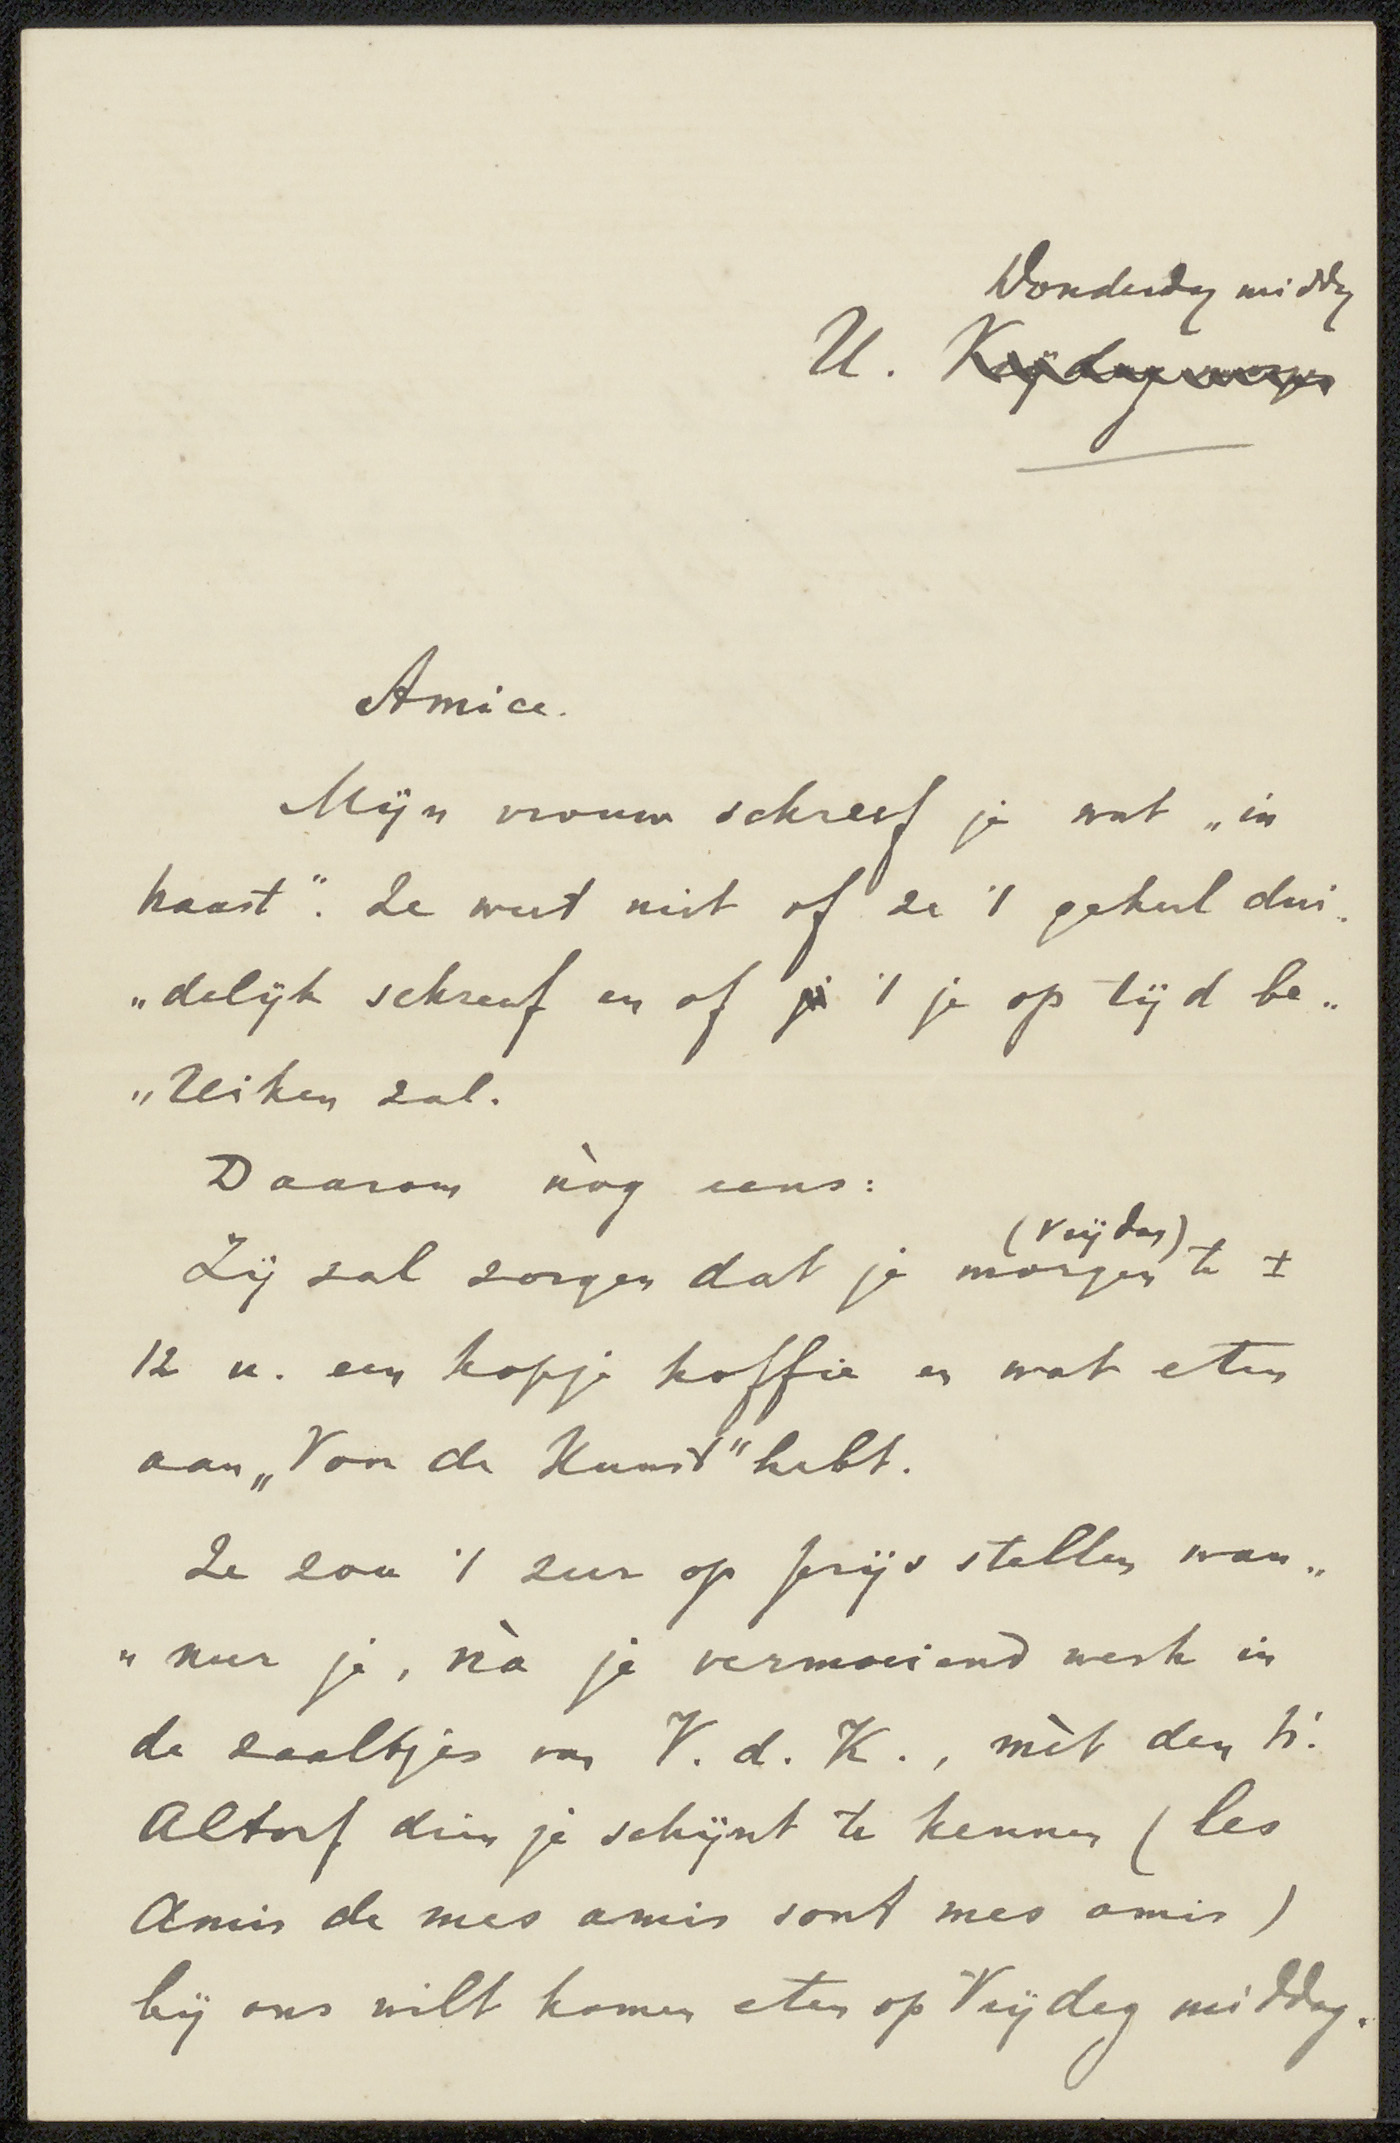 Donderdag middag
U. Vrijdag morgen
Amice.
Mijn vrouw schreef je wat „in
haast". Ze weet niet of ze 't geheel dui„
„delijk schreef en of 't je op tijd be„
„reiken zal.
Daarom nòg eens:
(Vrijdag)
Zij zal zorgen dat je morgen te ±
12 u. een kopje koffie en wat eten
aan „Voor de Kunst" hebt.
Ze zou 't zeer op prijs stellen wan„
„neer je, nà je vermoeiend werk in
de zaaltjes van V. d. K., mèt den h.
Altorf dien je schijnt te kennen (les
Amis de mes amis sont mes amis)
bij ons wilt komen eten op Vrijdag middag.